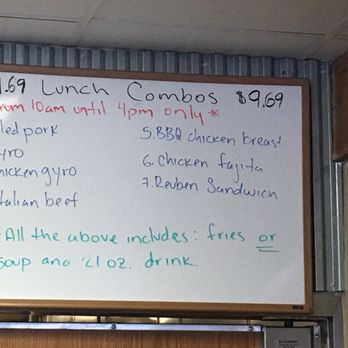 .69 Lunch Combos $9.69
from 10am until 4pm only*
led pork
yro
hicken gyro
talian beef
5. BBQ chicken breast
6. Chicken fajita
7. Reuben Sandwich
All the above includes: fries or
soup and 21 oz. drink